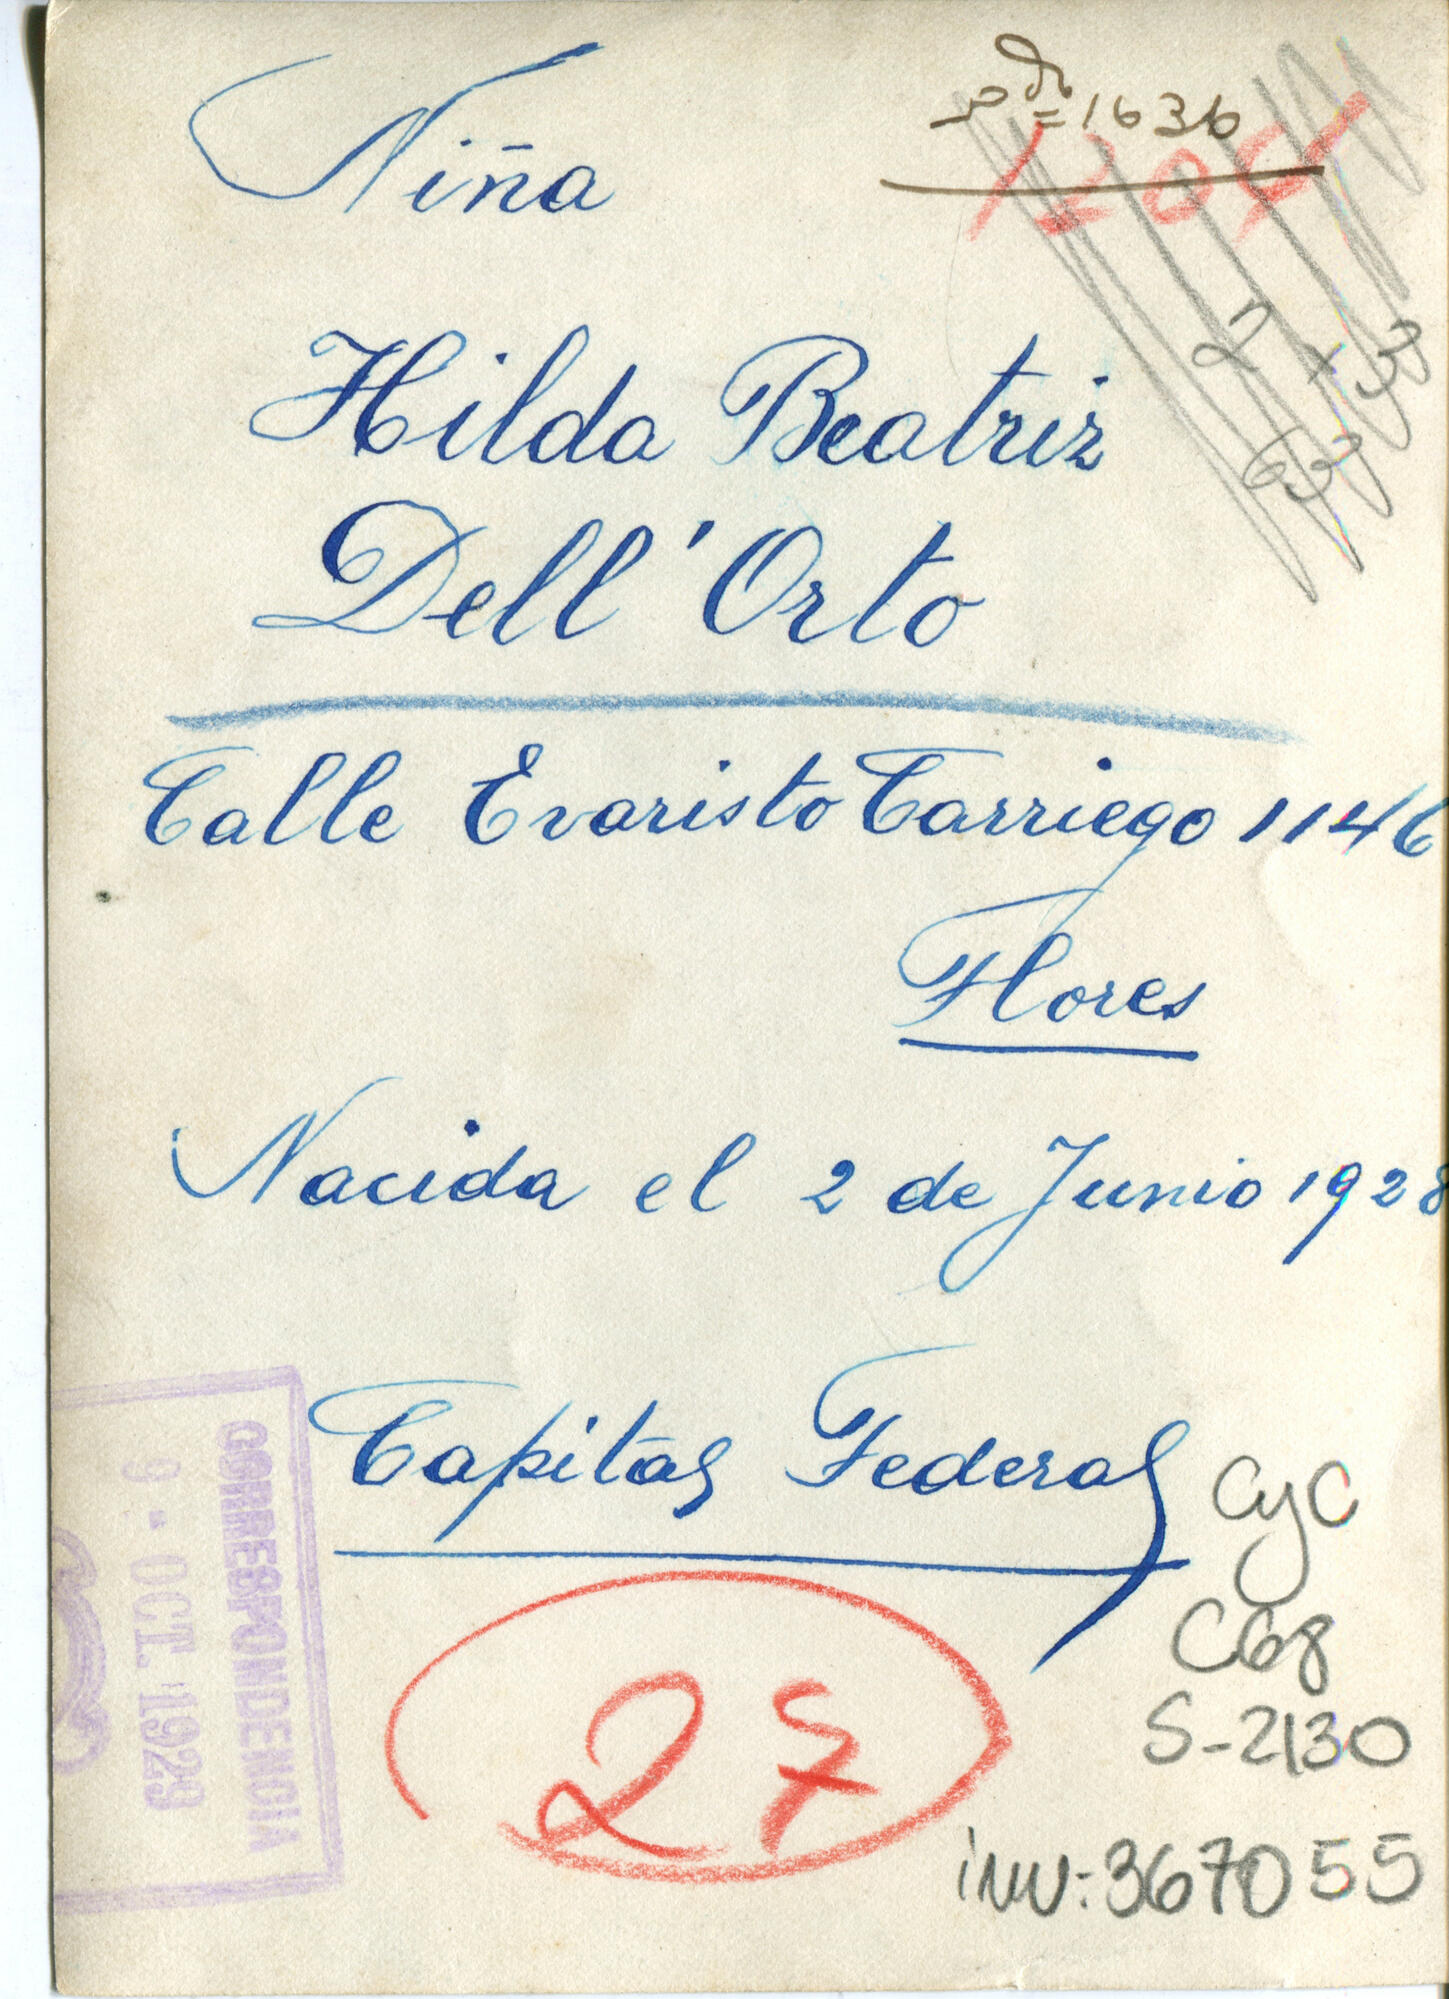 Niña
1636
Hilda Beatriz
Dell'Orto
Calle Evaristo Carriego 1146
Flores
Nacida el 2 de Junio 1928
Capital Federal
CORRESPONDENCIA
9 - OCT. 1929
27
CyC
C68
S-2130
inv: 367055